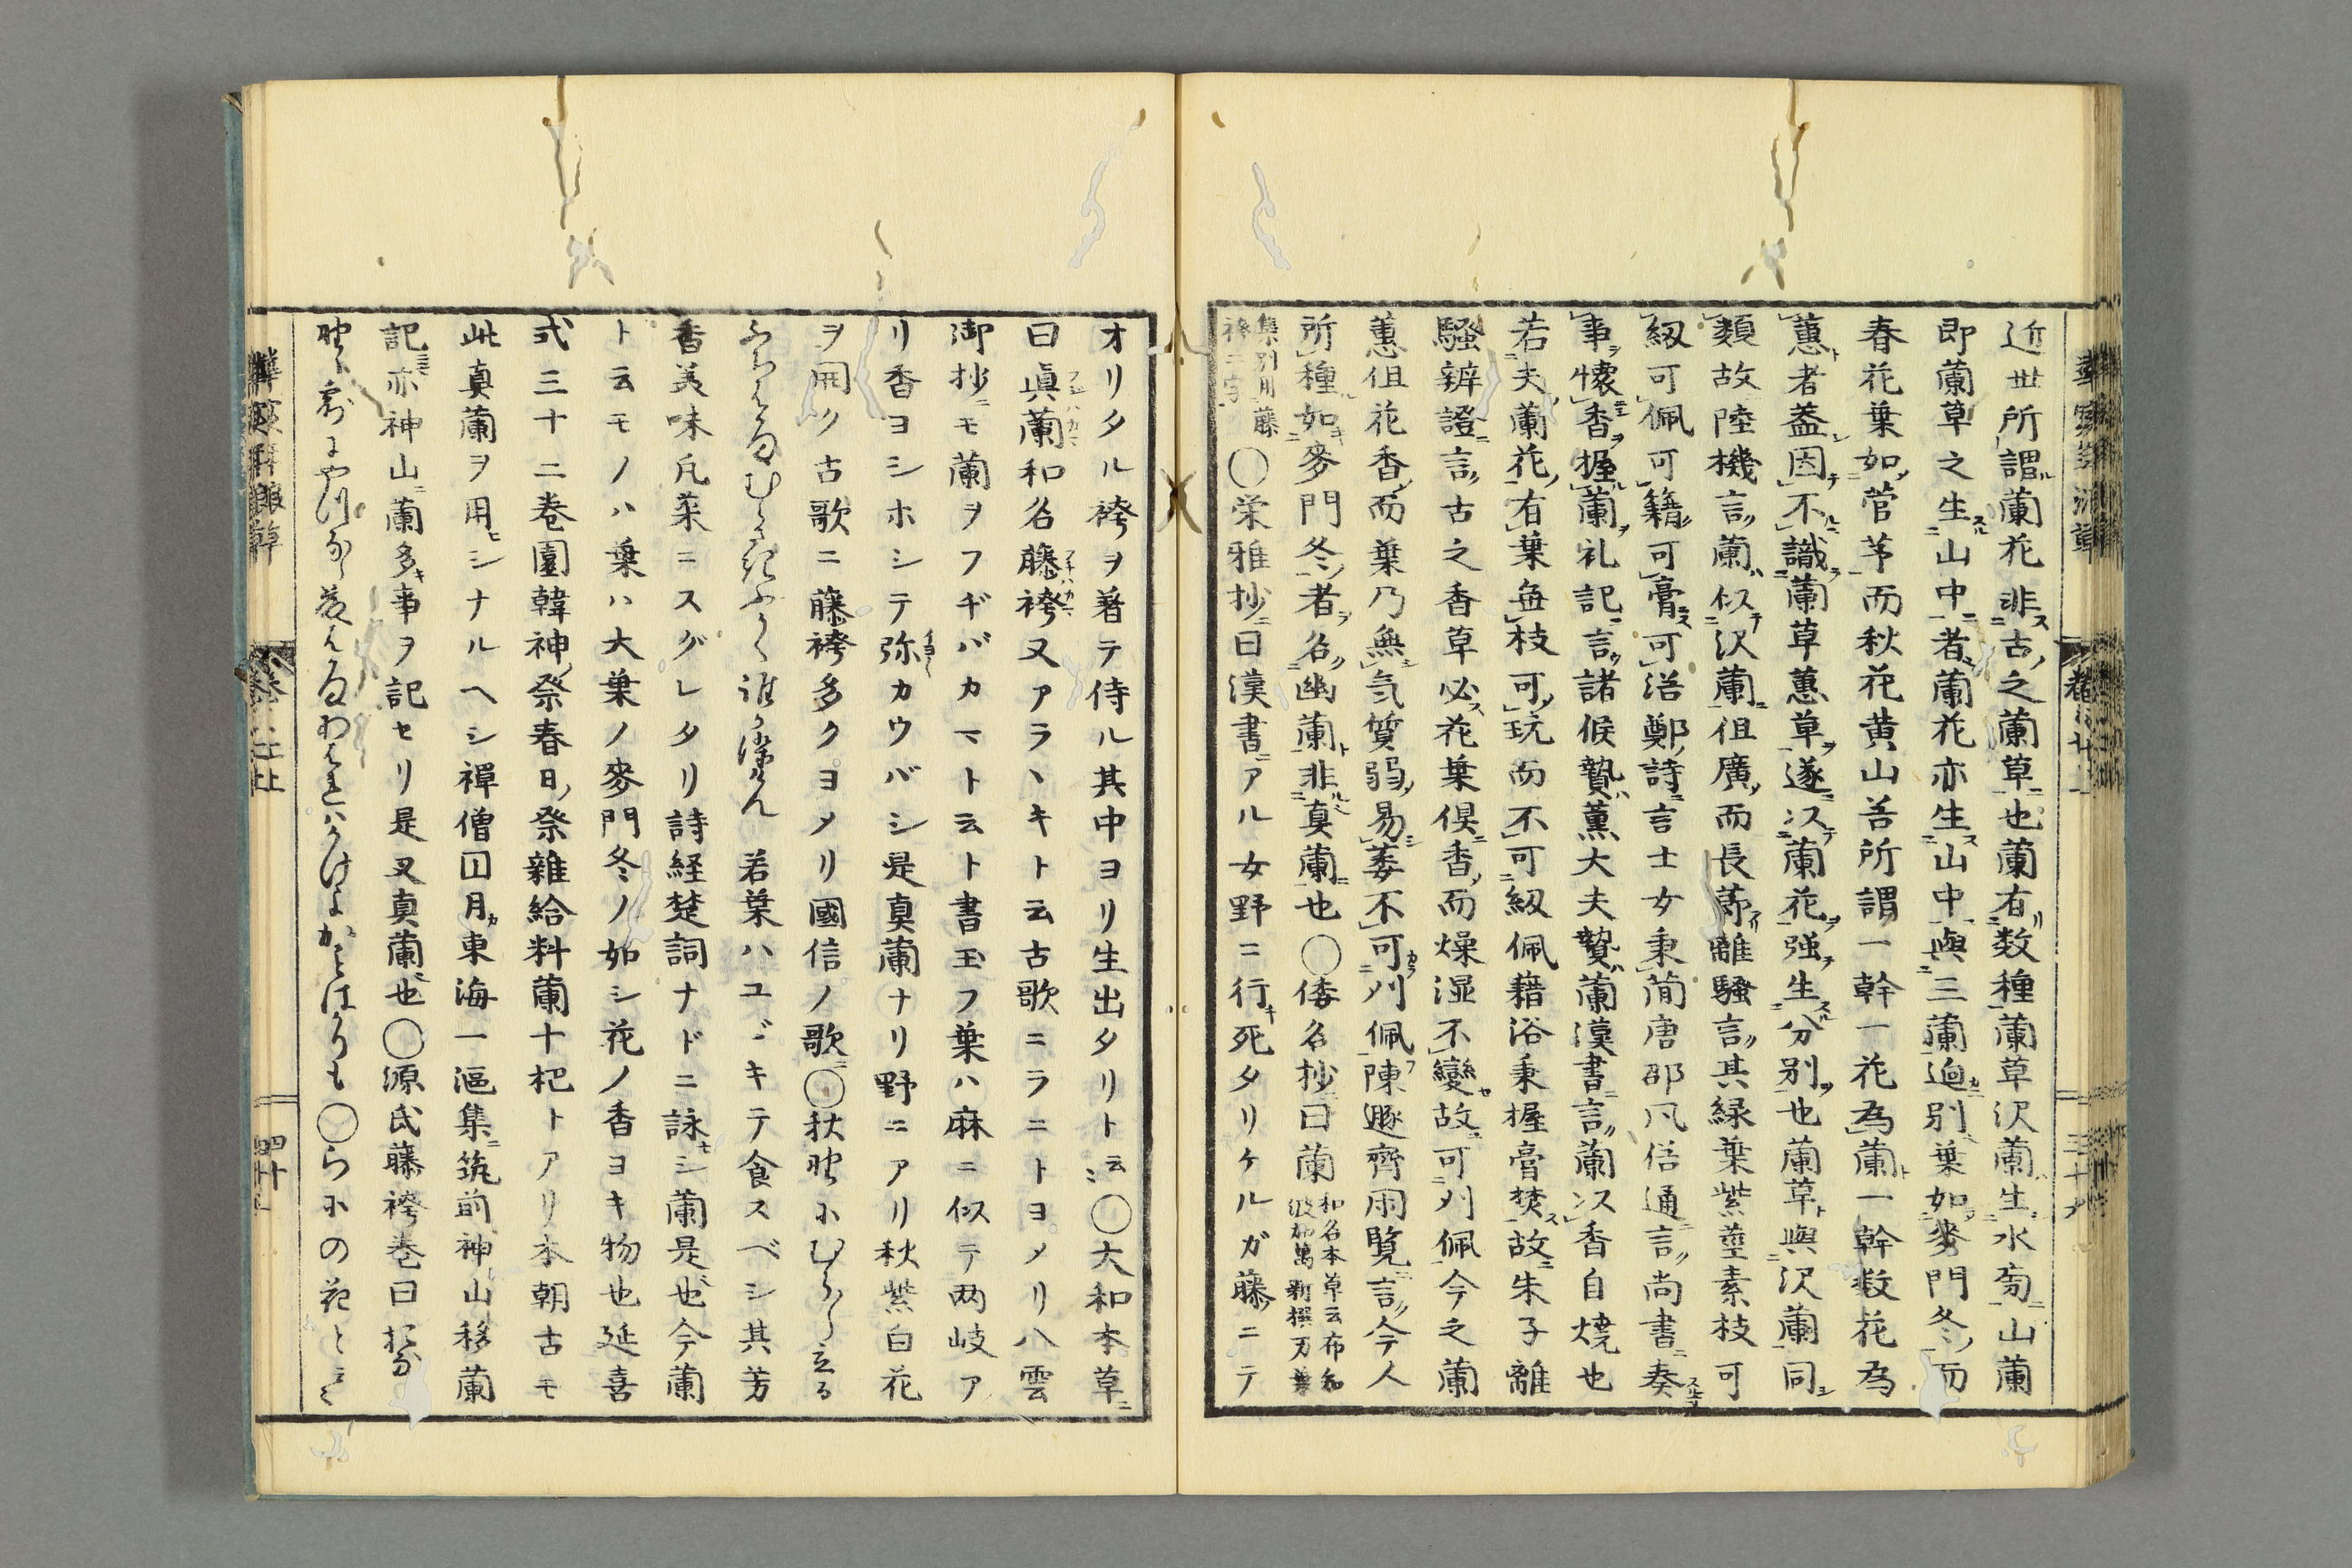 近世所謂蘭花非古之蘭草也蘭有数種蘭草沢蘭生水旁山蘭
即蘭草之生山中者蘭花亦生山中與三蘭逈別葉如麥門冬而
春花葉如菅茅而秋花黄山谷所謂一幹一花為蘭一幹数花為
蕙者盖因不識蘭草蕙草遂以蘭花强生分別也蘭草與沢蘭同
類故陸機言蘭似沢蘭但廣而長節離騒言其緑葉紫莖素枝可
紉可佩可籍可膏可浴鄭詩言士女秉蕑唐邵凡俗通言尚書奏
事懐香握蘭礼記言諸候贄薫大夫贄蘭漢書言蘭以香自焼也
若夫蘭花有葉無枝可玩而不可紉佩藉浴秉握膏焚故朱子離
騒辨證言古之香草必花葉倶香而燥湿不變故可刈佩今之蘭
蕙但花香而葉乃無気質弱易萎不可刈佩陳遯齊閑覧言今人
所種如麥門冬者名幽蘭非真蘭也〇倭名抄曰蘭 和名本草云布知波加萬 新撰万葉
集別用藤袴二字〇栄雅抄ニ曰漢書ニアル女野ニ行キ死タリケルガ藤ニテ
オリタル袴ヲ着テ侍ル其中ヨリ生出タリト云〇大和本草ニ
曰真蘭和名藤袴又アラヽキト云古歌ニラニトヨメリ八雲
御抄ニモ蘭ヲフヂバカマト云ト書玉フ葉ハ麻ニ似テ两岐ア
リ香ヨシホシテ弥カウバシ是真蘭ナリ野ニアリ秋紫白花
ヲ開ク古歌ニ藤袴多クヨメリ國信ノ歌ニ〇秋野にむら〳〵立る
若葉ハユビキテ食スベシ其芳
香美味凡菜ニスグレタリ詩経楚詞ナドニ詠モシ蘭是也今蘭
ト云モノハ葉ハ大葉ノ麥門冬ノ如シ花ノ香ヨキ物也延喜
式三十二巻園韓神祭春日祭雜給料蘭十把トアリ本朝古モ
此真蘭ヲ用ヒシナルヘシ禅僧囙月カ東海一漚集ニ筑前神山移蘭
記亦神山ニ蘭多キ事ヲ記セリ是又真蘭也〇源氏藤袴巻曰
〇らにの花と